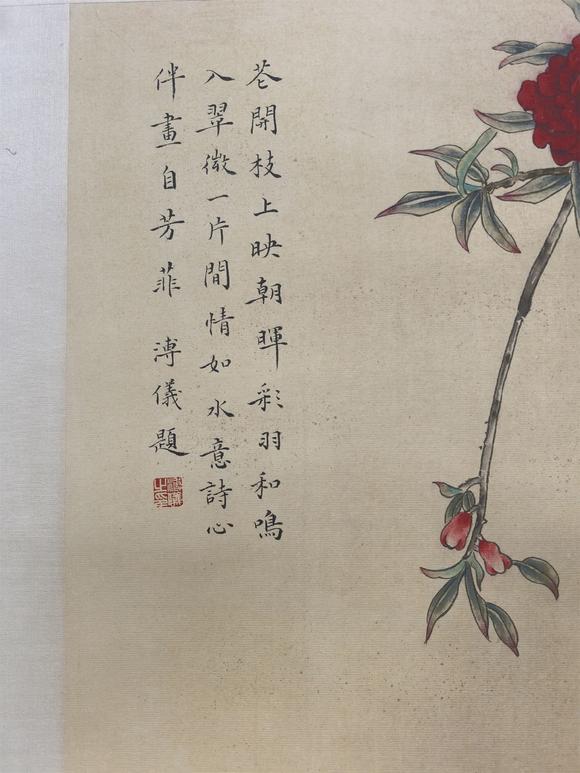 苍開枝上映朝暉彩羽和鳴
入翠微一片閒情如水意詩心
伴畫自芳菲 溥儀題